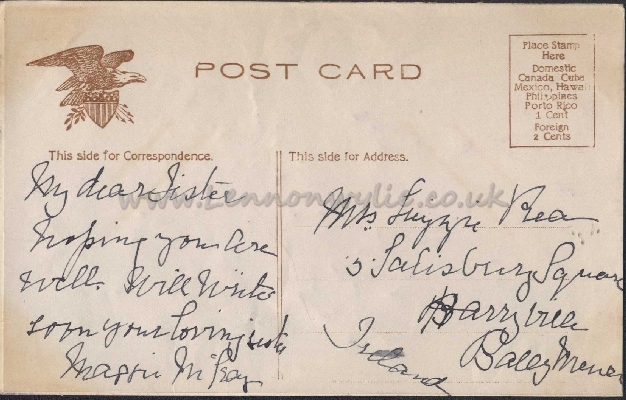 POST CARD
Place Stamp
Here
Domestic
Canada Cuba
Mexico, Hawaii
Philippines
Porto Rico
1 Cent
Foreign
2 Cents
This side for Correspondence.
My dear Sister
hoping you are
well. Will Write
soon your loving sister
Maggie
This side for Address.
Mrs Rea
5 Salisbury Square
Ballymena
Ireland
www.Lennonwylie.co.uk